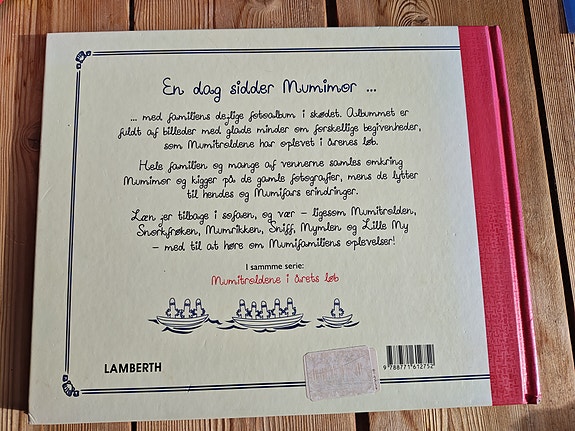 En dag sidder Mumimor ...
... med familiens dejlige fotoalbum i skødet. Albummet er
fuldt af billeder med glade minder om forskellige begivenheder,
som Mumitroldene har oplevet i årenes løb.
Hele familien og mange af vennerne samles omkring
Mumimor og kigger på de gamle fotografier, mens de lytter
til hendes og Mumifars erindringer.
Læn jer tilbage i sofaen, og vær – ligesom Mumitrolden,
Snorkfrøken, Mumrikken, Sniff, Mymlen og Lille My
– med til at høre om Mumifamiliens oplevelser!
I sammme serie:
Mumitroldene i årets løb
LAMBERTH
9 788771 612752